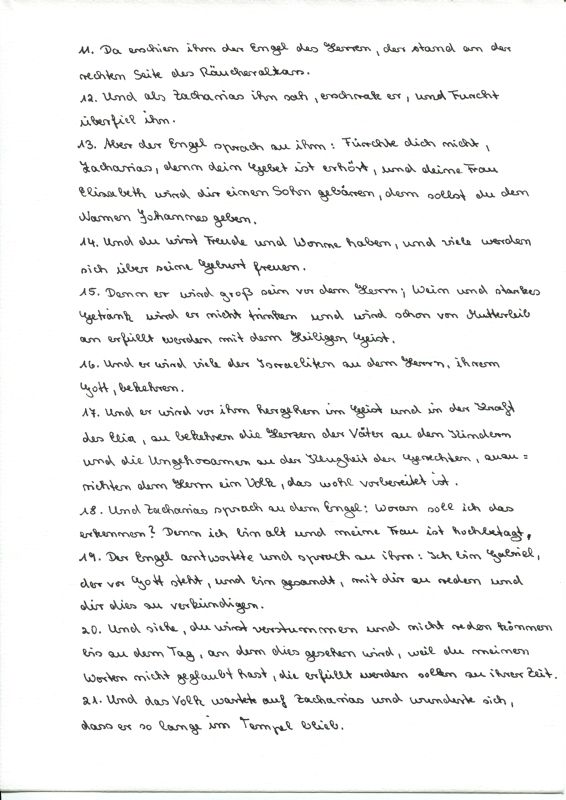 11. Da erschien ihm der Engel des Herren, der stand an der
rechten Seite des Räucheraltars.
12. Und als Zacharias ihn sah, erschrak er, und Furcht
überfiel ihn.
13. Aber der Engel sprach zu ihm: Fürchte dich nicht,
Zacharias, denn dein Gebet ist erhört, und deine Frau
Elisabeth wird dir einen Sohn gebären, dem sollst du den
Namen Johannes geben.
14. Und du wirst Freude und Wonne haben, und viele werden
sich über seine Geburt freuen.
15. Denn er wird groß sein vor dem Herrn; Wein und starkes
Getränk wird er nicht trinken und wird schon von Mutterleib
an erfüllt werden mit dem Heiligen Geist.
16. Und er wird viele der Israeliten zu dem Herrn, ihrem
Gott, bekehren.
17. Und er wird vor ihm hergehen im Geist und in der Kraft
des Elia, zu bekehren die Herzen der Väter zu den Kindern
und die Ungehorsamen zu der Klugheit der Gerechten, zuzu=
richten dem Herrn ein Volk, das wohl vorbereitet ist.
18. Und Zacharias sprach zu dem Engel: Woran soll ich das
erkennen? Denn ich bin alt und meine Frau ist hochbetagt.
19. Der Engel antwortete und sprach zu ihm: Ich bin Gabriel,
der vor Gott steht, und bin gesandt, mit dir zu reden und
dir dies zu verkündigen.
20. Und siehe, du wirst verstummen und nicht reden können
bis zu dem Tag, an dem dies geschehen wird, weil du meinen
Worten nicht geglaubt hast, die erfüllt werden sollen zu ihrer Zeit.
21. Und das Volk wartete auf Zacharias und wunderte sich,
dass er so lange im Tempel blieb.